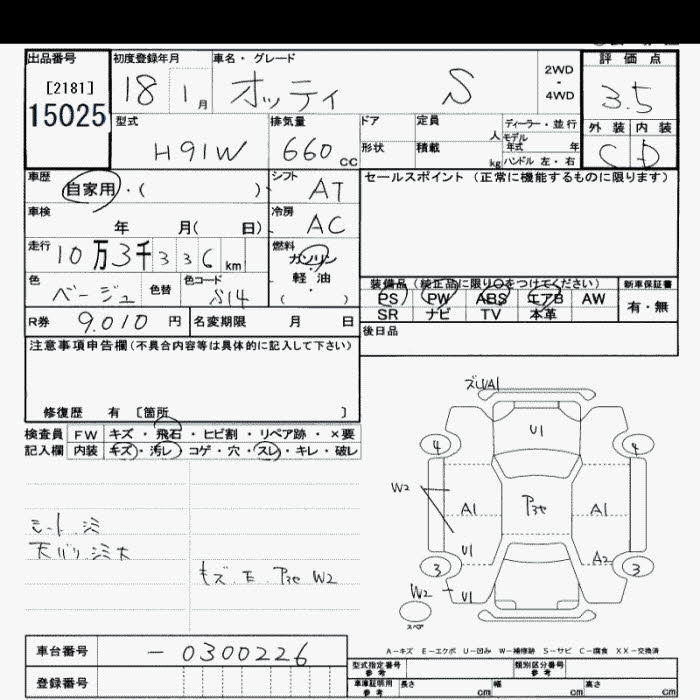 出品番号 初度登録年月 車名・グレード 評価点
[2181] 18 1月 オッティ S 2WD・4WD 3.5
15025
型式 H91W 排気量 660cc ドア 定員 人 ディーラー・並行 外装 内装
形状 積載 kg モデル年式 年 C D
ハンドル 左・右
車歴 自家用・( ) シフト AT セールスポイント (正常に機能するものに限ります)
車検 年 月( 日) 冷房 AC
走行 10万3千336km 燃料 ガソリン
軽油
( ・ )
色 ベージュ 色替 色コード S14
装備品(純正品に限り○をつけてください) 新車保証書
PS PW ABS エアB AW 有・無
SR ナビ TV 本革
R券 9.010円 名変期限 月 日 後日品
注意事項申告欄(不具合内容等は具体的に記入して下さい)
修復歴 有 〔箇所 〕
検査員 FW キズ・飛石・ヒビ割・リペア跡・×要
記入欄 内装 キズ・汚レ・コゲ・穴・スレ・キレ・破レ
A1
U1
4 4
W2
A1 A1
U1 A2
3 3
W2 U1
スペア
シート
キズ.E. W2
A-キズ E-エクボ U-凹み W-補修跡 S-サビ C-腐食 XX-交換済
車台番号 -0300226
型式指定番号 参考 類別区分番号 参考
登録番号
車庫証明用 参考 長さ cm 幅 cm 高さ cm